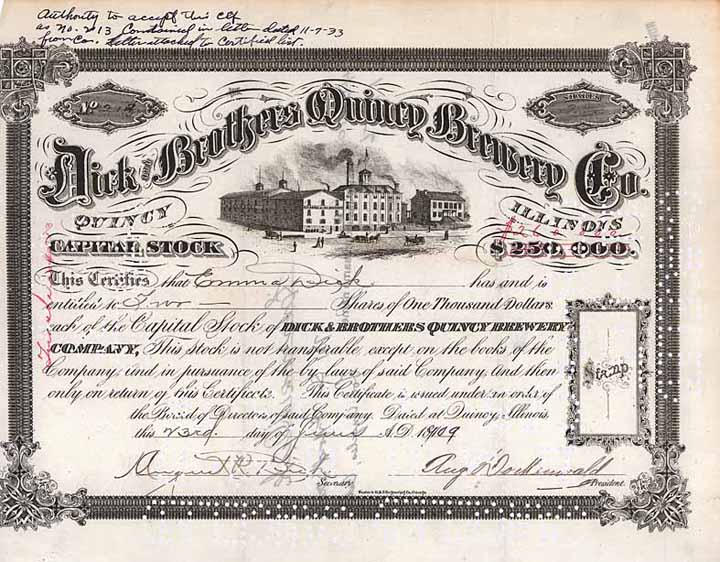 Authority to accept this ctf
as No. 213 Contained in letter dated 11-7-33
from Co. Letter attached to Certified list.
No
SHARES
Dick and Brothers Quincy Brewery Co.
QUINCY ILLINOIS
CAPITAL STOCK $250,000.
This Certifies that Emma Dick has and is
entitled to Two Shares of One Thousand Dollars
each of the Capital Stock of DICK & BROTHERS QUINCY BREWERY
COMPANY, This stock is not transferable except on the books of the
Company, and in pursuance of the by-laws of said Company, And then
only on return of this Certificate. This Certificate is issued under an order of
the Board of Directors of said Company. Dated at Quincy, Illinois.
this 23rd day of June A.D. 1909
Stamp
August R. Dick
Secretary
Aug
President.